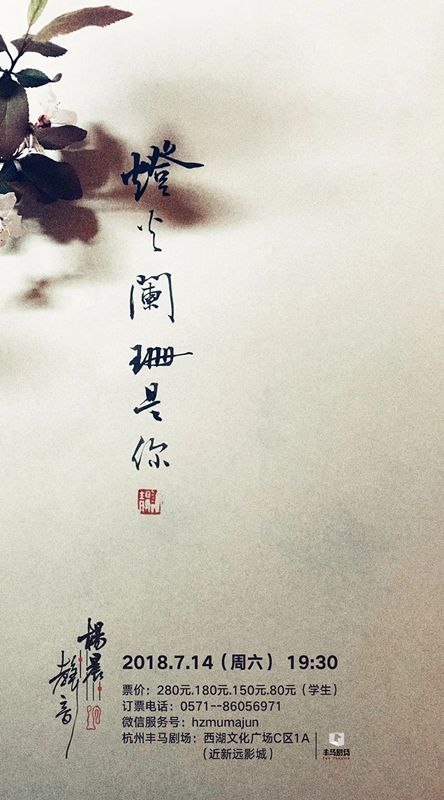 燈火闌珊是你
楊晨
靜音
2018.7.14（周六） 19:30
票价：280元.180元.150元.80元（学生）
订票电话：0571--86056971
微信服务号：hzmumajun
杭州丰马剧场：西湖文化广场C区1A
（近新远影城）
丰马剧场